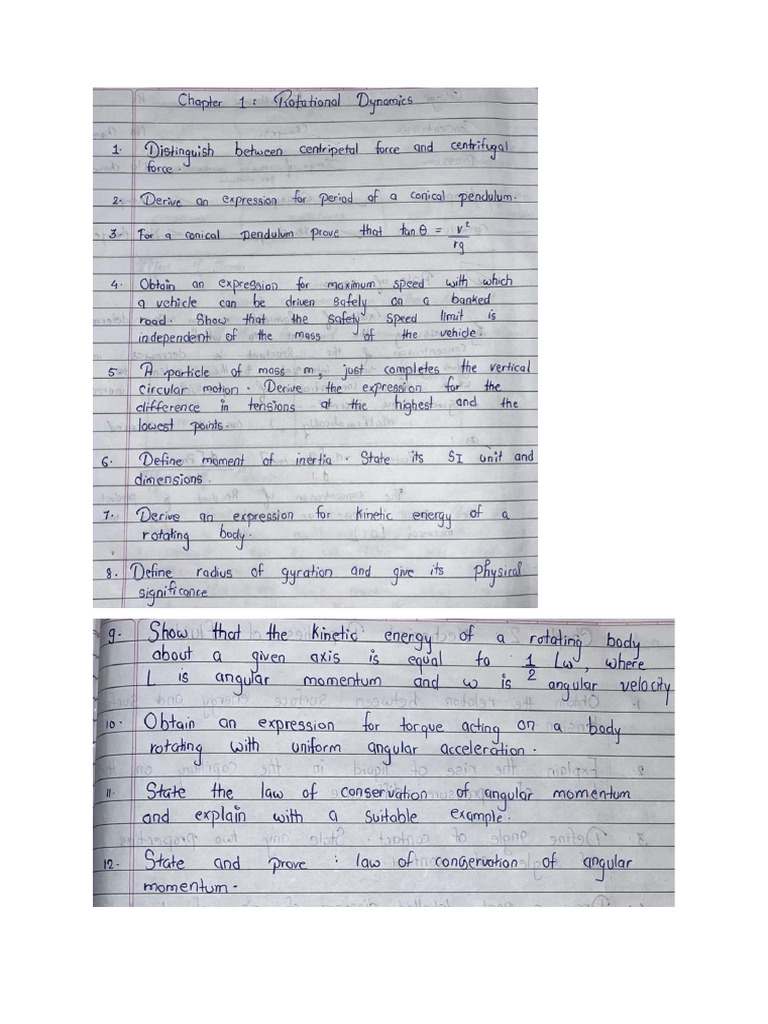 Chapter 1: Rotational Dynamics
1. Distinguish between centripetal force and centrifugal
force.
2. Derive an expression for period of a conical pendulum.
3. For a conical pendulum prove that tan θ = v²/rg
4. Obtain an expression for maximum speed with which
a vehicle can be driven safely on a banked
road. Show that the safety speed limit is
independent of the mass of the vehicle.
5. A particle of mass m, just completes the vertical
circular motion. Derive the expression for the
difference in tensions at the highest and the
lowest points.
6. Define moment of inertia. State its SI unit and
dimensions.
7. Derive an expression for kinetic energy of a
rotating body.
8. Define radius of gyration and give its physical
significance
9. Show that the kinetic energy of a rotating body
about a given axis is equal to 1/2 Lω, where
L is angular momentum and ω is angular velocity
10. Obtain an expression for torque acting on a body
rotating with uniform angular acceleration.
11. State the law of conservation of angular momentum
and explain with a suitable example.
12. State and prove : law of conservation of angular
momentum.